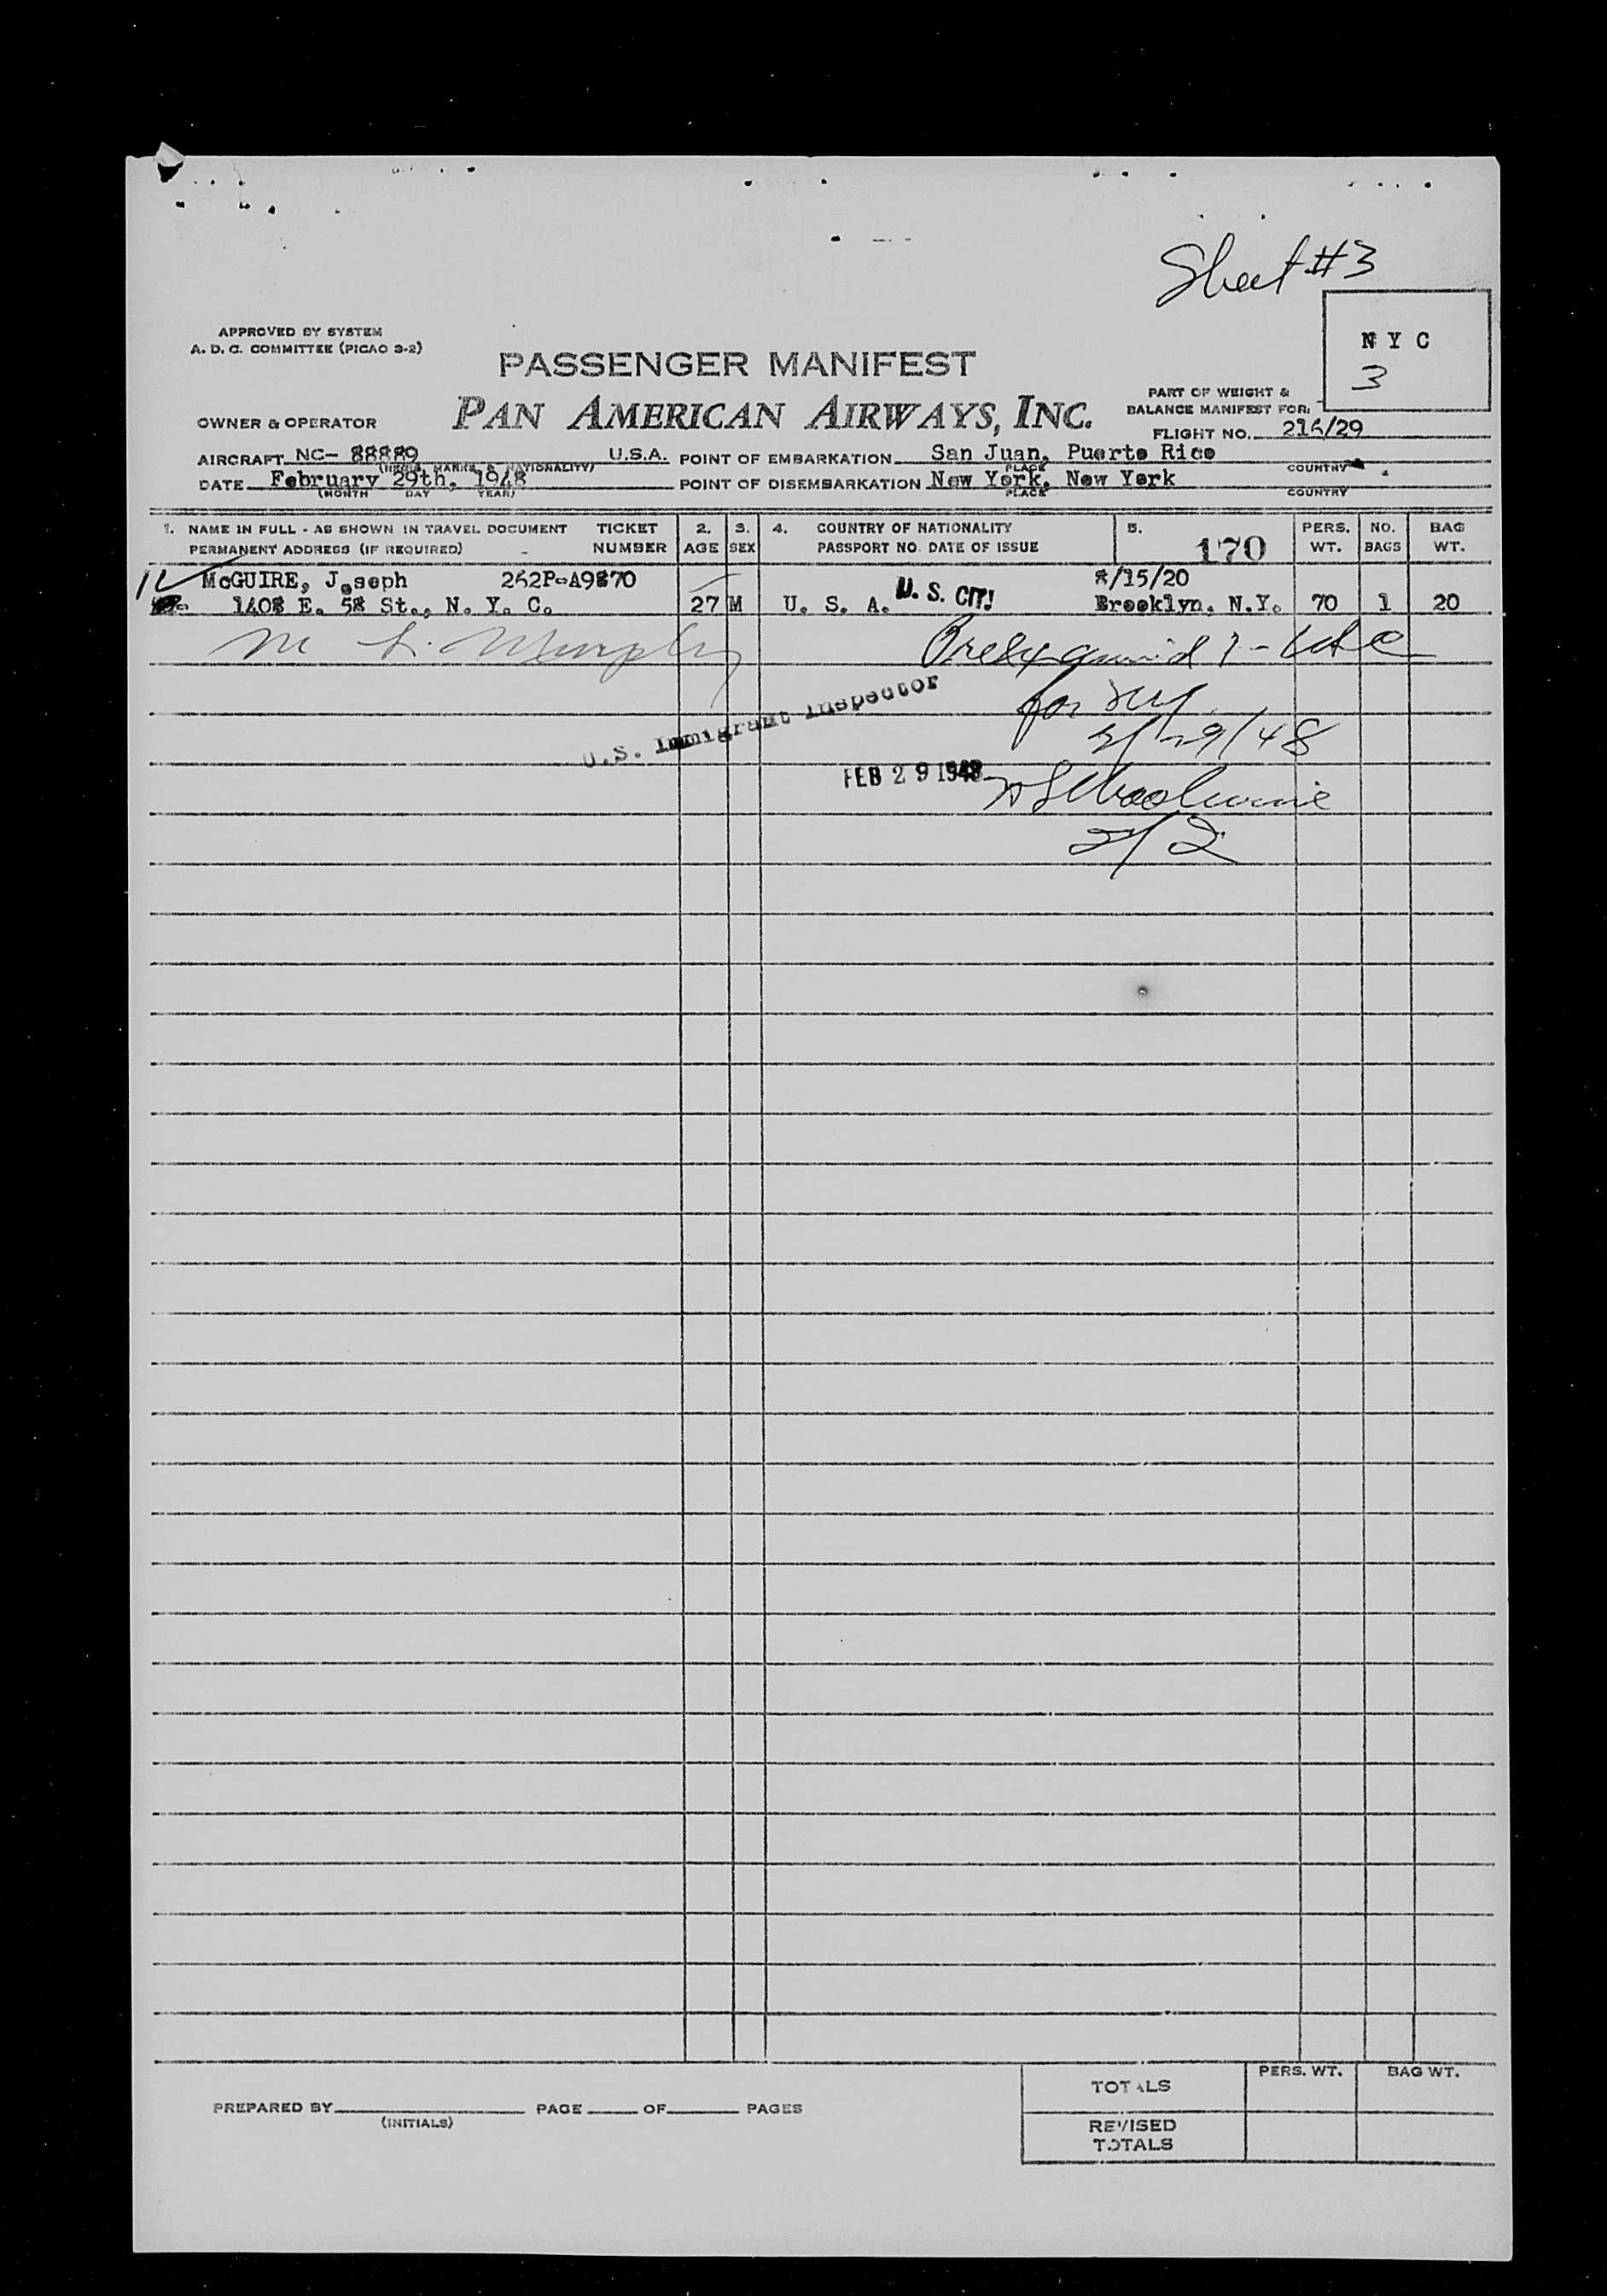 Sheet #3
APPROVED BY SYSTEM
A. D. C. COMMITTEE (PICAO 3-2)
N Y C
3
PASSENGER MANIFEST
PART OF WEIGHT &
BALANCE MANIFEST FOR:
OWNER & OPERATOR PAN AMERICAN AIRWAYS, INC.
FLIGHT NO. 216/29
AIRCRAFT NC- 88889 U.S.A. POINT OF EMBARKATION San Juan, Puerto Rico
(REGIS. MARKS, & NATIONALITY) PLACE COUNTRY
DATE February 29th, 1948 POINT OF DISEMBARKATION New York, New York
(MONTH DAY YEAR) PLACE COUNTRY
1. NAME IN FULL - AS SHOWN IN TRAVEL DOCUMENT TICKET 2. 3. 4. COUNTRY OF NATIONALITY 5. PERS. NO. BAG
PERMANENT ADDRESS (IF REQUIRED) NUMBER AGE SEX PASSPORT NO. DATE OF ISSUE 170 WT. BAGS WT.
McGUIRE, Joseph 262P-A9870 8/15/20
1408 E. 58 St., N. Y. C. 27 M U. S. A. U. S. CIT! Brooklyn, N.Y. 70 1 20
M L. Murphy
for
2/29/48
U.S. Immigrant Inspector
FEB 29 1948
2/2
TOTALS PERS. WT. BAG WT.
PREPARED BY PAGE OF PAGES
(INITIALS)
REVISED
TOTALS